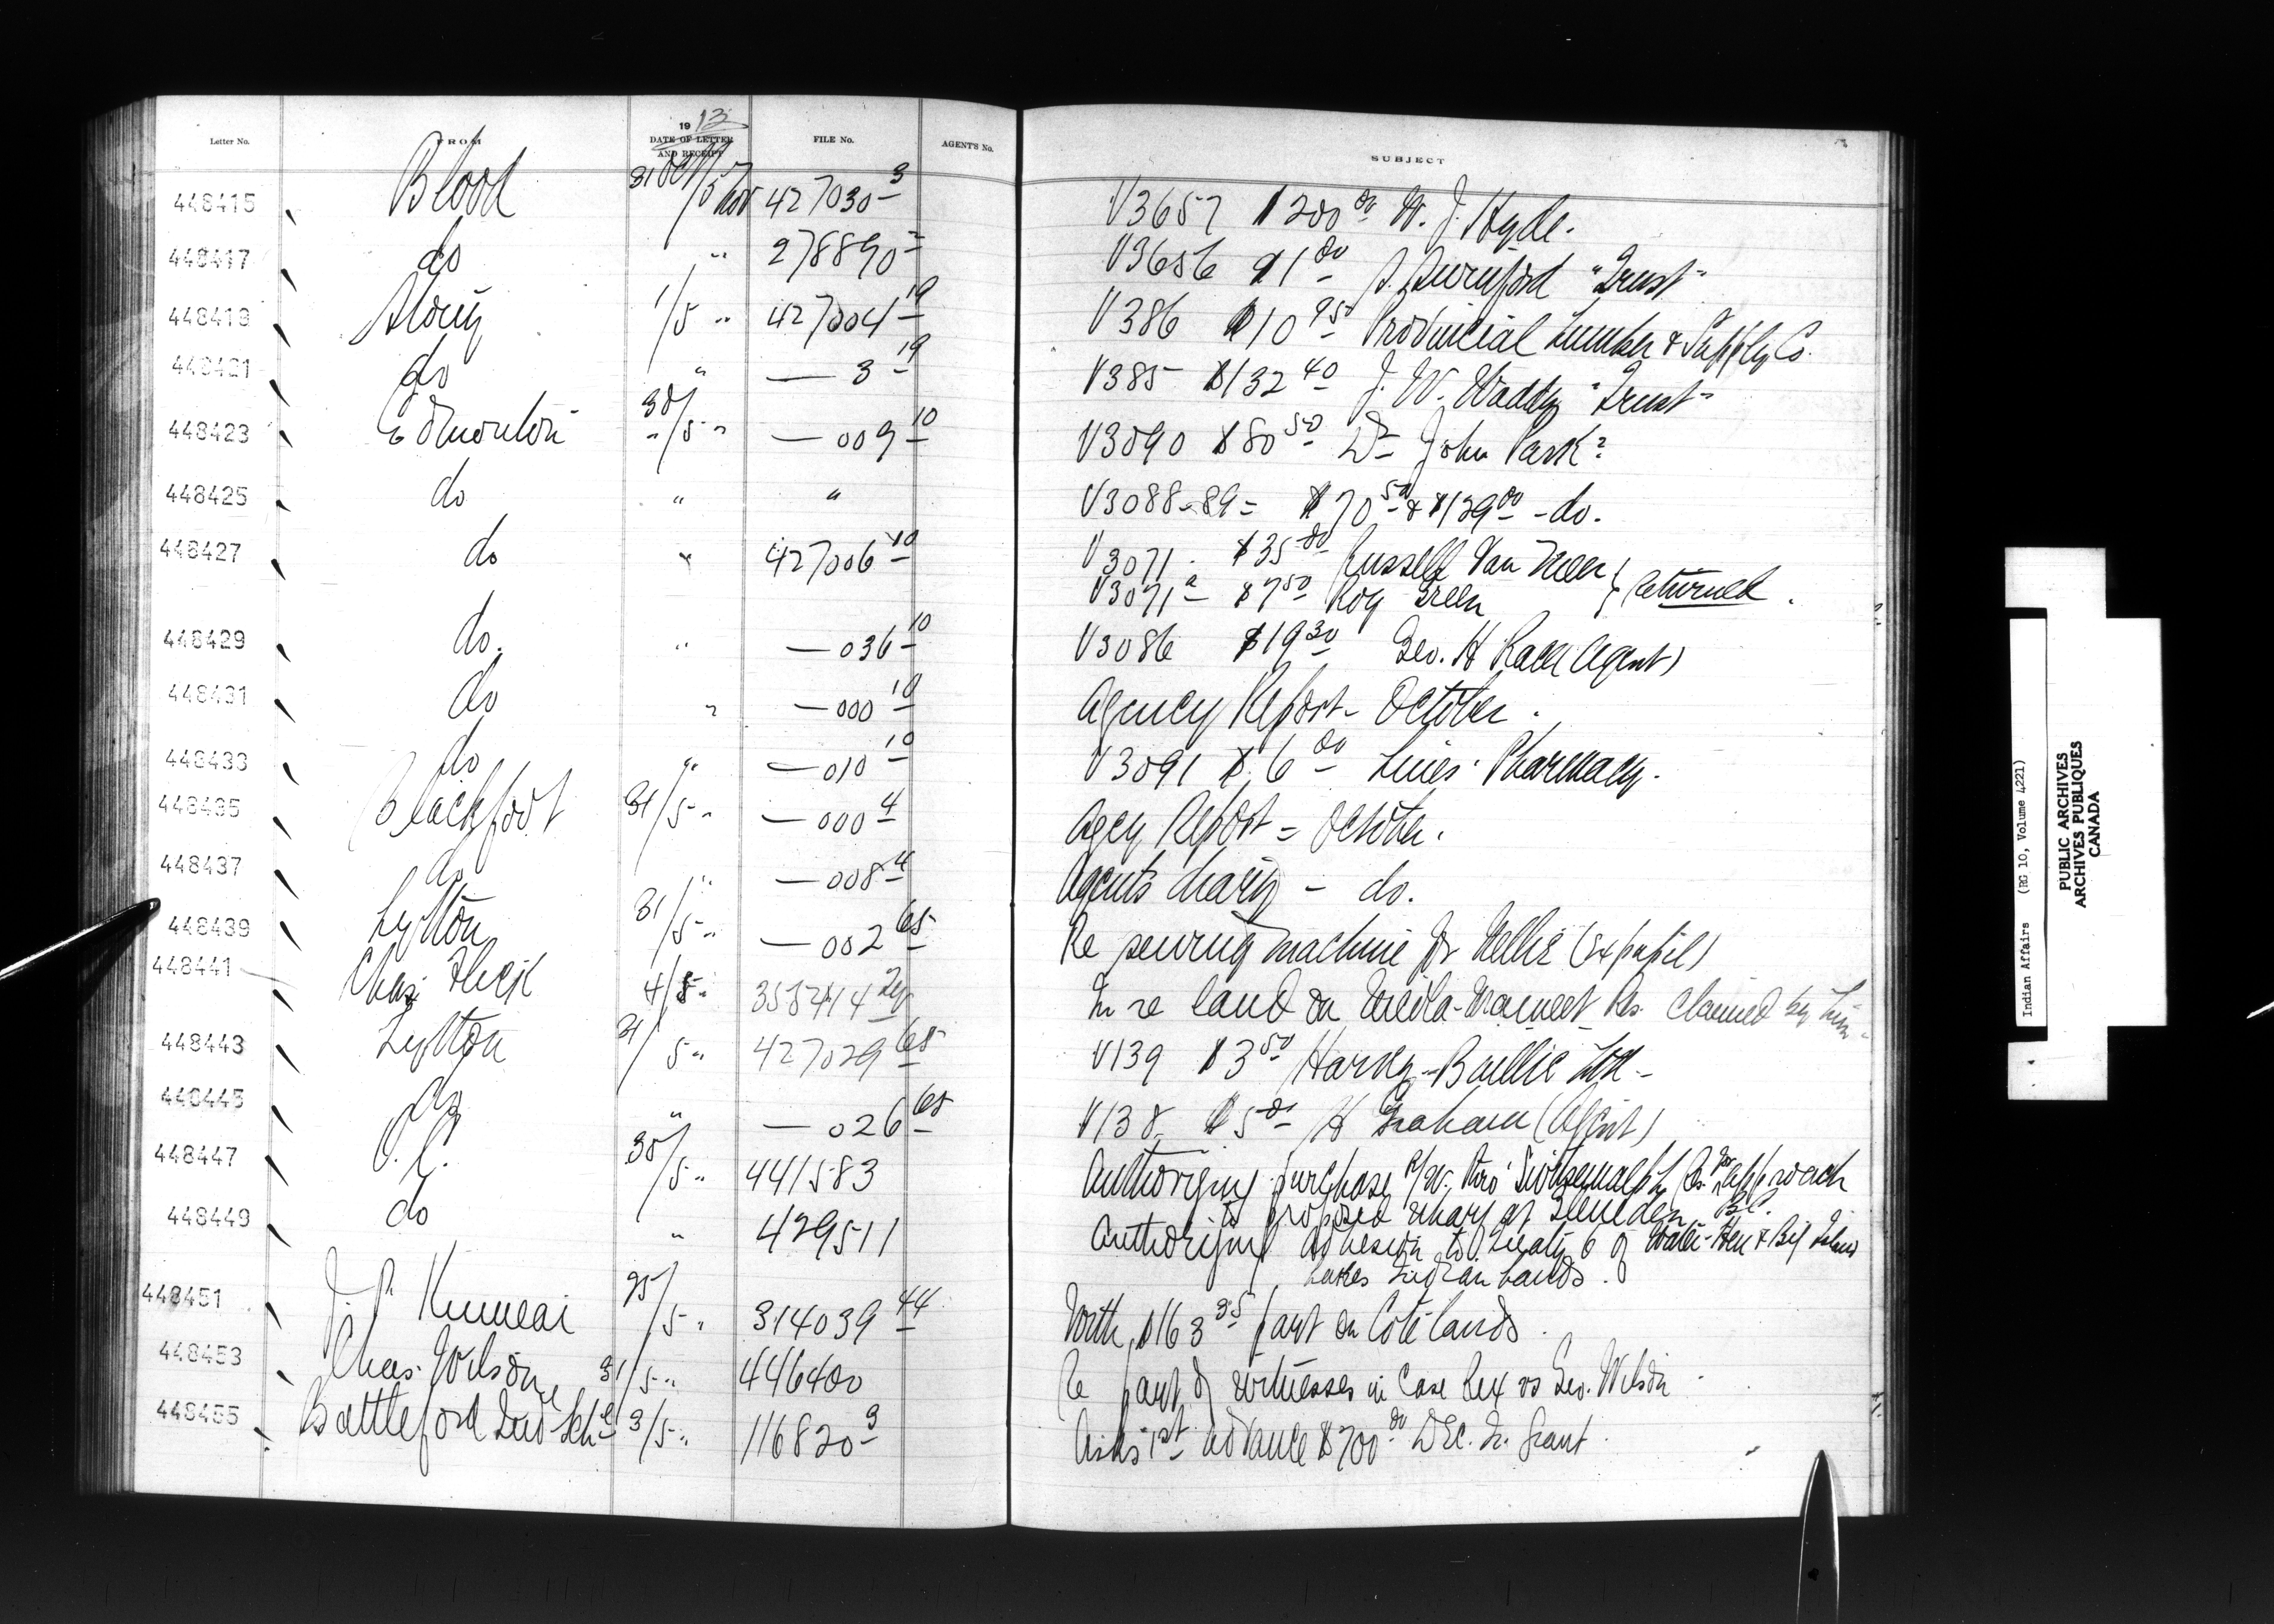 Letter No. FROM 1913 DATE OF LETTER AND RECEIPT FILE No. AGENT'S No. SUBJECT
448415 Blood 31 Oct/5 Nov 427030-3 V3657 $200.00 W. J. Hyde.
448417 do " 278890-2 V3656 $1.00 "Trust"
448419 Stony 1/5 " 427004-19 V386 $10.95 Provincial Lumber & Supply Co.
448421 do " — 3-19 V385 $132.40 J. W. Waddy "Trust"
448423 Edmonton 30/5 " — 009-10 V3090 $80.50 Dr John Park
448425 do " " V3088-89 = $70.50 & $139.00 - do.
448427 do " 427006-10 V3071 . $35.00 Russell Van
V3071a $7.50 Roy Green } returned.
448429 do. " — 036-10 V3086 $19.30 Geo. H Race (Agent)
448431 do " — 000-10 Agency Report - October.
448433 do " — 010-10 V3091 $6.00 Lines' Pharmacy.
448435 Blackfoot 31/5 " — 000-4 Agcy Report = October.
448437 do " — 008-4 Agents diary - do.
448439 Lytton 31/5 " — 002-65 Re sewing machine for Nellie (Ex pupil)
448441 Chas. Flick 4/5 " In re land on Res. claimed by him -
448443 Lytton 31/5 " 427029-65 V139 $3.50 Harvey-Baillie Ltd -
448445 do " — 026-65 V138 $5.00 H Graham (Agent)
448447 O.C. 30/5 " 441583 Authorizing purchase R/W. thro' Res. for approach
to proposed wharf at B.C.
448449 do " 429511 Authorizing adhesion to Treaty 6 of Water-Hen & Big Island
Lakes Indian bands.
448451 J. P. 25/5 " 314039-44 With $163.35 payt on Coté lands.
448453 Chas. Wilson 31/5 " 446400 Re payt of witnesses in case Rex vs Geo. Wilson -
448455 Battleford Ind Schl 3/5 " 116820-9 Asks 1st advance $700.00 Dec. Qr. Grant.
Indian Affairs (RG 10, Volume 4221)
PUBLIC ARCHIVES
ARCHIVES PUBLIQUES
CANADA